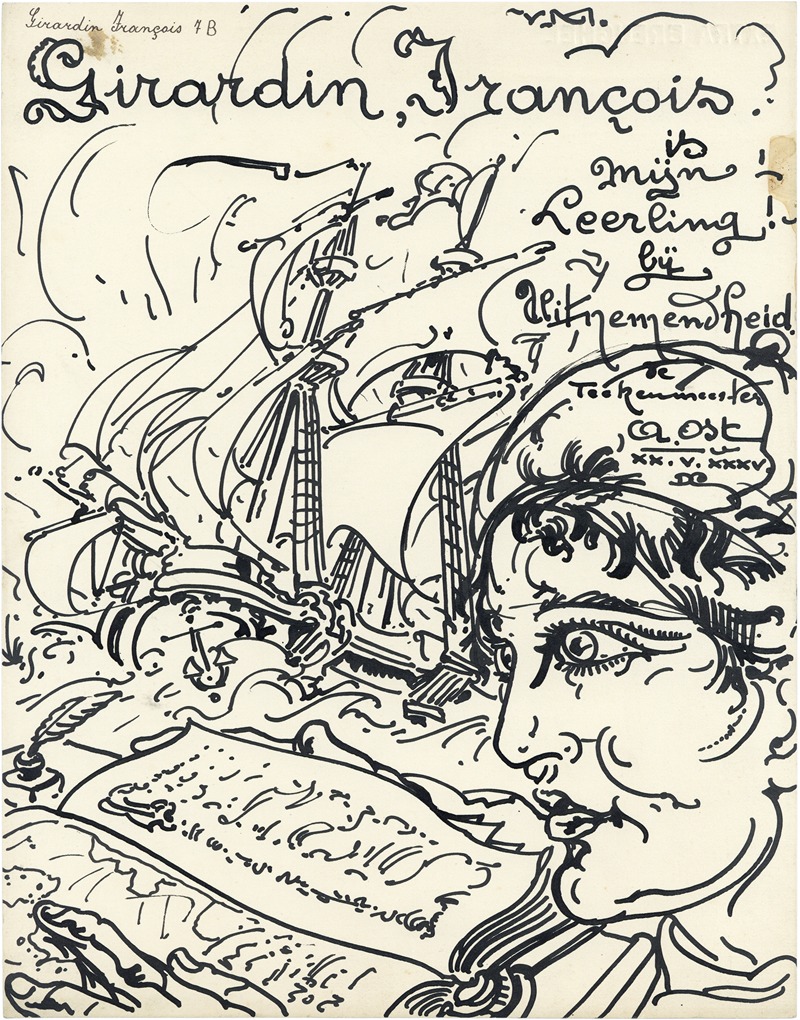 Girardin François 7B
v.M.
Girardin, François
is
mijn
Leerling!
bij
Uitnemendheid.
de
Teekenmeester
A. Ost
XX.V.XXXV